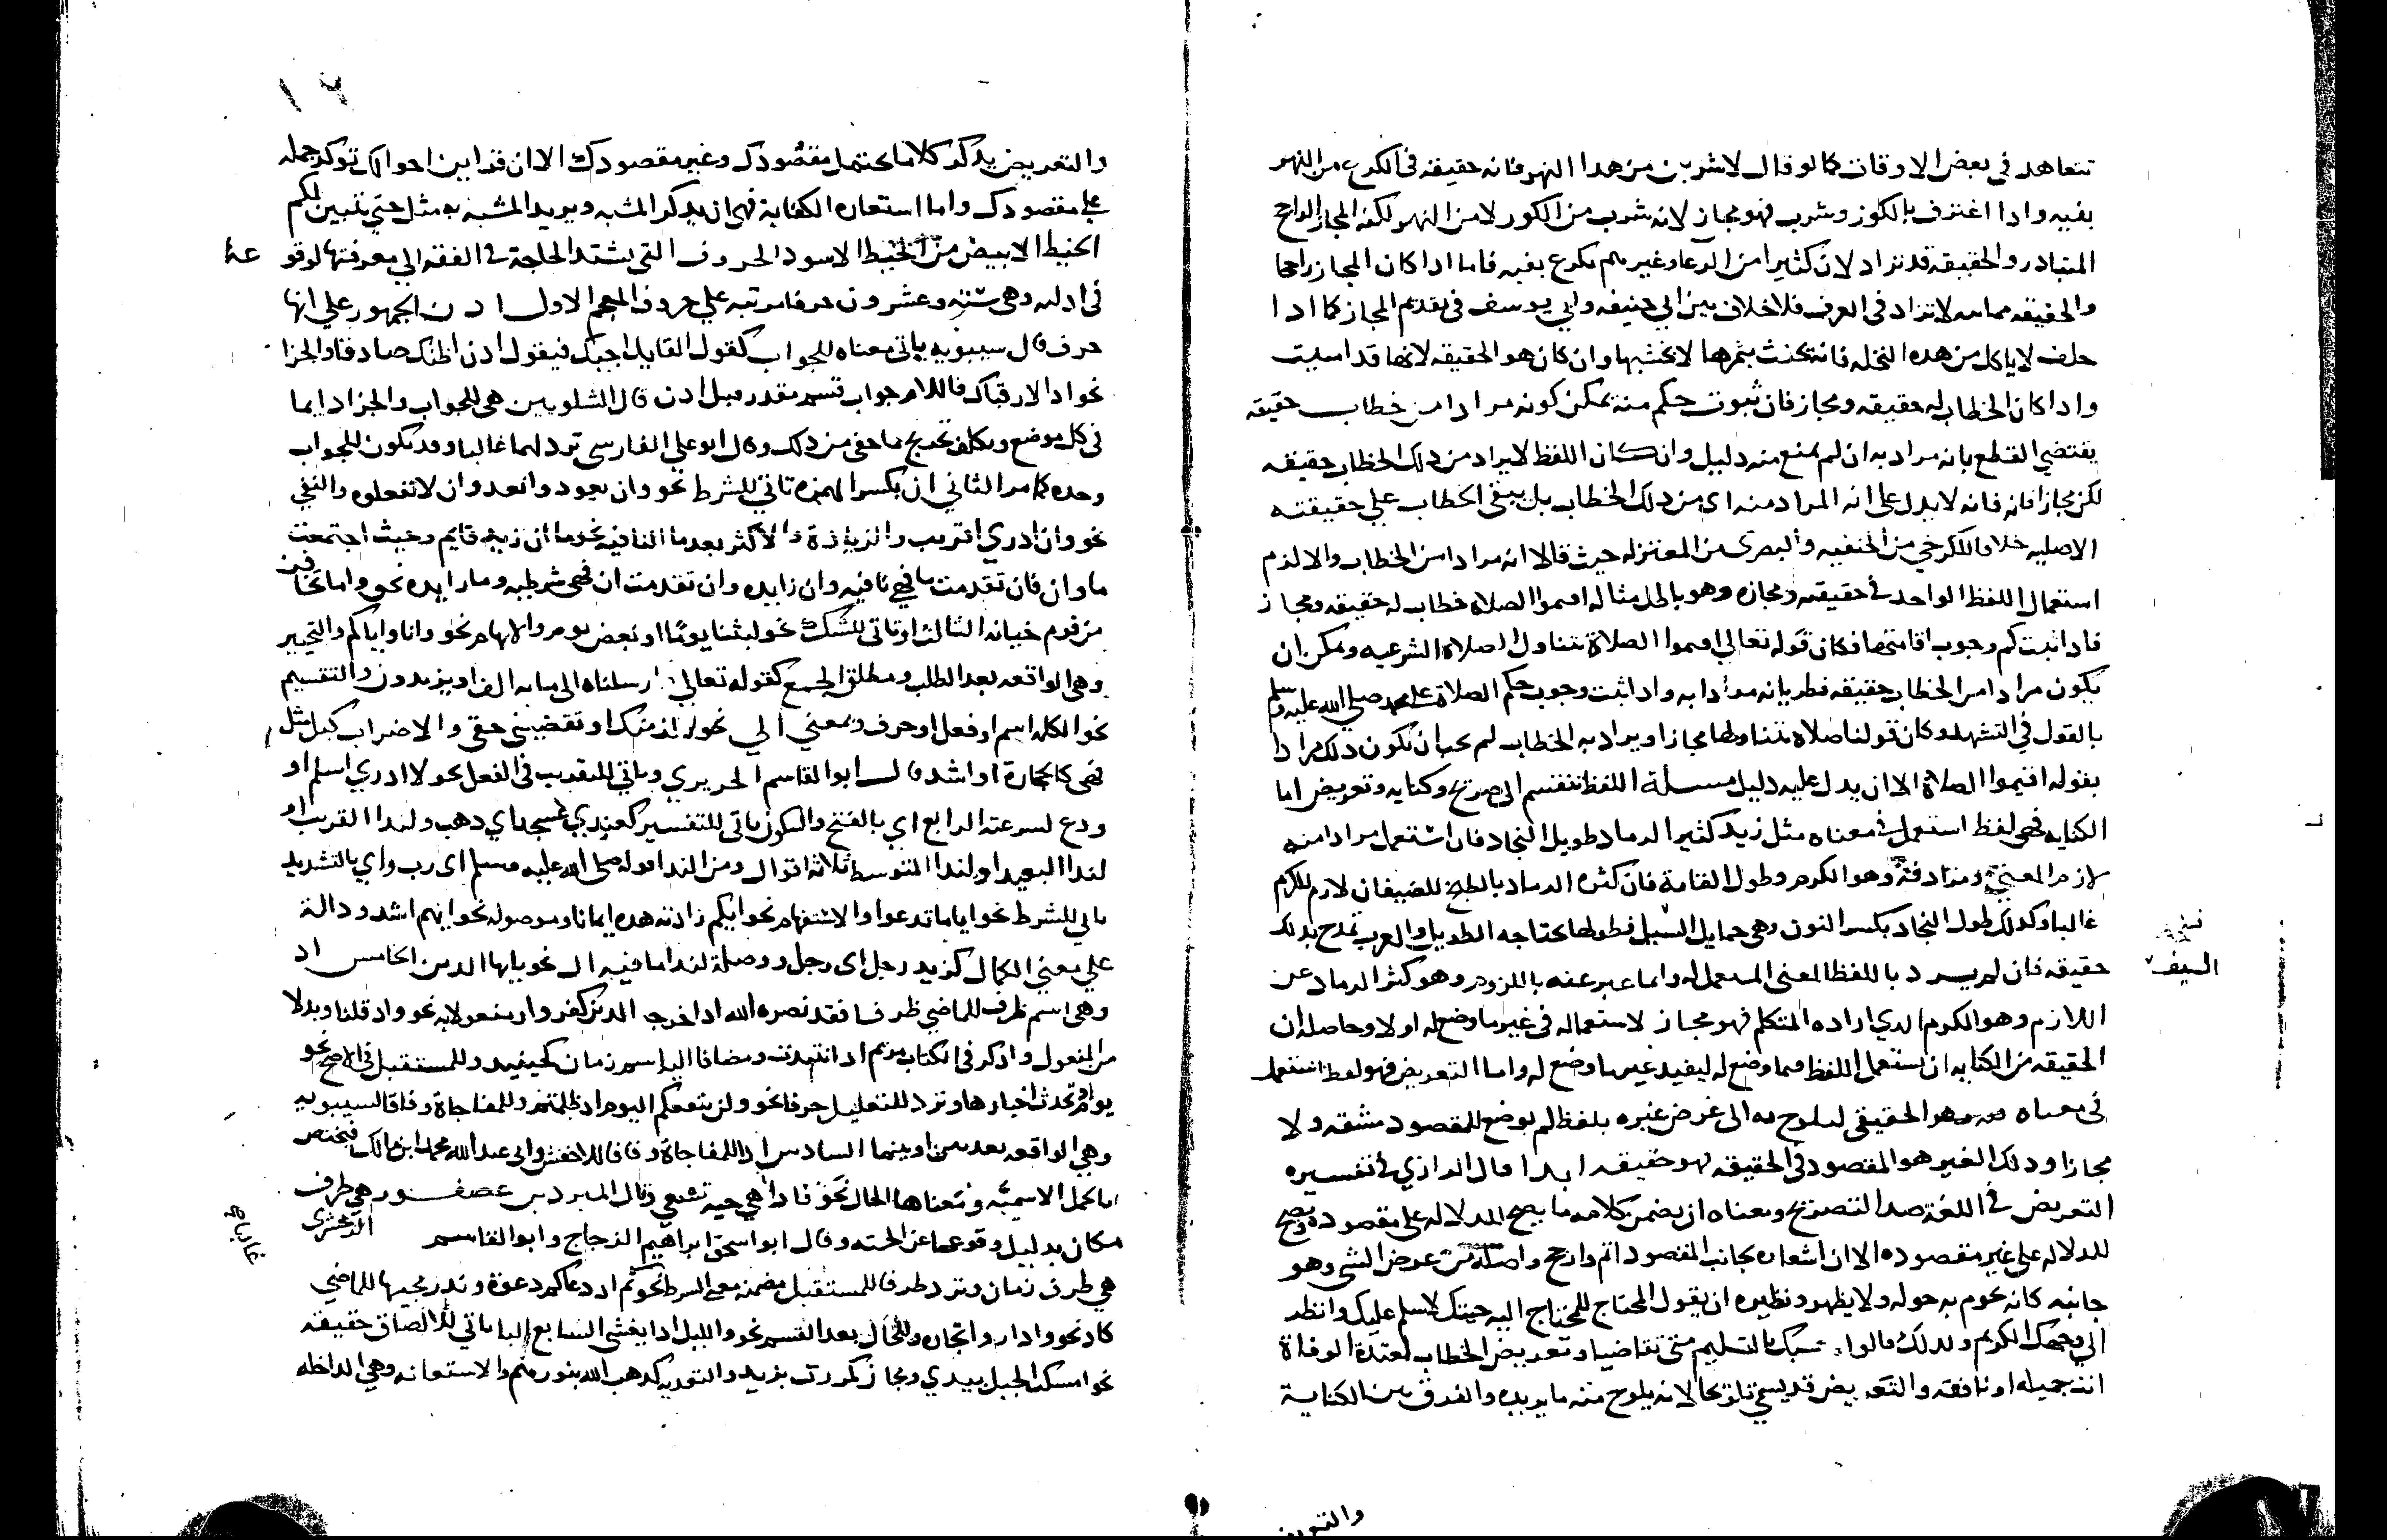 تتعاهد في بعض الاوقات كما لو قال لاشربن من هدا النهر فانه حقيقه في الكرع من النهر
بفيه وادا اغترف بالكوز وشرب فهو مجاز لانه شرب من الكوز لا من النهر لكنه المجاز الراجح
المتبادر والحقيقه قد تراد لان كثيرا من الرعا وغيرهم يكرع بفيه فاما ادا كان المجاز راجحا
والحقيقه مماته لا تراد في العرف فلا خلاف بين ابي حنيفه وابي يوسف في تقديم المجاز كما ادا
حلف لا ياكل من هده النخله فانه يحنث بثمرها لا بخشبها وان كان هو الحقيقه لانها قد اميتت
وادا كان الخطاب له حقيقه ومجاز فان ثبوت حكم منه يمكن كونه مرادا من خطاب حقيقه
يقتضي القطع بانه مراد به ان لم يمنع منه دليل وان كان اللفظ لا يراد من دلك الخطاب حقيقه
لكن مجازا فانه فانه لا يدل على انه المراد منه اي من دلك الخطاب بل يبقى الخطاب على حقيقته
الاصليه خلافا للكرخي من الحنفيه والبصري من المعتزله حيث قالا انه مرادا من الخطاب والا لزم
استعمال اللفظ الواحد في حقيقته ومجازه وهو باطل مثاله اقيموا الصلاة خطاب له حقيقه ومجاز
فادا ثبت كم وجوب اقامتها فكان قوله تعالى اقيموا الصلاة يتناول الصلاه الشرعيه ويمكن ان
يكون مرادا من الخطاب حقيقه قطع بانه مرادا به وادا ثبت وجوب حكم الصلاة على محمد صلى الله عليه وسلم
بالقول في التشهد وكان قولنا صلاه يتناولها مجازا ويراد به الخطاب لم يجب ان يكون دلك مرادا
بقوله اقيموا الصلاة الا ان يدل عليه دليل مسالة اللفظ تنقسم الى صريح وكنايه وتعريض اما
الكنايه فهي لفظ استعمل في معناه مثل زيد كثير الرماد طويل النجاد فان استعمل مرادا منه
لازم المعني ومرادفة وهو الكرم وطول القامة فان كثره الرماد بالطبخ للضيفان لازم للكرم
غالبا وكدلك طول النجاد بكسر النون وهي حمايل السيل فطولها يحتاجه الطويل والعرب تمدح بدلك
السيف
حقيقه فان لم يرد باللفظ المعنى المستعمل له وانما عبر عنه بالملزوم وهو كثر الرماد عن
اللازم وهو الكرم الدي اراده المتكلم فهو مجاز لاستعماله في غير ما وضع له اولا وحاصله ان
الحقيقه من الكنايه ان يستعمل اللفظ فيما وضع له ليفيد غير ما وضع له واما التعريض فهو لفظ استعمل
في معناه وهو الحقيقي ليلوح به الى غرض غيره بلفظ لم يوضع للمقصود مشقه ولا
مجازا ودلك الغير هو المقصود في الحقيقه فهو حقيقه ابدا قال الرازي في تفسيره
التعريض في اللغة ضد التصريح ومعناه ان يضمن كلامه ما يصح للدلاله على مقصوده ويصح
للدلاله على غير مقصوده الا ان اشعاره بجانب المقصود اتم وارجح واصله من عرض الشي وهو
جانبه كانه يحوم به حوله ولا يظهر ونظيره ان يقول المحتاج للمحتاج اليه جيتك لاسلم عليك وانظر
الي وجهك الكريم ولدلك قالوا حسبك بالتسليم مني تقاضيا وتعريض الخطاب لمعتدة الوفاة
انت جميله او نافقه والتعريض قد يسمي تلويحا لانه يلوح منه ما يريده والفرق بين الكناية
والتعريض
١٢
والتعريض يدكر كلاما يحتمل مقصودك وغير مقصودك الا ان قراين احوالك توكد حمله
على مقصودك واما استعاره الكناية فهي ان يدكر المشبه ويريد المشبه به مثل حتي يتبين لكم
الخيط الابيض من الخيط الاسود الحروف التي يشتد الحاجة في الفقه الي معرفتها لوقوعها
في ادلته وهي ستة وعشرون حرفا مرتبه علي حروف المعجم الاول ادن الجمهور علي انها
حرف قال سيبويه ياتي معناه للجواب كقول القايل اجيك فيقول ادن اظنك صادقا والجزا
نحو ادا لارقباك فاللام جواب قسم مقدر قبل ادن قال الشلوبين هي للجواب والجزا دايما
في كل موضع ويكلف تخريج ما خفي من دلك وقال ابو علي الفارسي ترد لهما غالبا وقد تكون للجواب
وحده كما مر الثاني ان بكسر الهمزه تاتي للشرط نحو وان تعودوا نعد وان لا تفعلوه والنفي
نحو وان ادري اقريب والزيادة والاكثر بعد ما النافيه نحو ما ان زيد قايم وحيث اجتمعت
ما وان فان تقدمت ما فهي نافيه وان زايده وان تقدمت ان فهي شرطيه وما زايده نحو واما تخافن
من قوم خيانه الثالث او تاتي للشك نحو لبثنا يوما او بعض يوم والابهام نحو وانا واياكم والتخيير
وهي الواقعه بعد الطلب ومطلق الجمع كقوله تعالى ارسلناه الى مايه الف او يزيدون والتقسيم
نحو الكله اسم او فعل او حرف وبمعني الي نحو لالزمنك او تقضيني حقي والاضراب كبل مثل
فهي كالحجارة او اشد قال ابو القاسم الحريري وياتي للتقريب في الفعل نحو لا ادري اسلم او
ودع لسرعته الرابع اي بالفتح والسكون ياتي للتفسير كعندي عسجد اي دهب ولندا القريب او
لندا البعيد او لندا المتوسط ثلاثة اقوال ومن الندا قوله صلى الله عليه وسلم اي رب واي بالتشديد
تاتي للشرط نحو ايا ما تدعوا والاستفهام نحو ايكم زادته هده ايمانا وموصوله نحو ايهم اشد ودالة
علي معني الكمال كزيد رجل اي رجل ووصلة لندا ما فيه ال نحو يايها الدين الخامس اد
وهي اسم ظرف للماضي ظرفا فقد نصره الله اد اخرجه الدين كفروا ومفعولا به نحو واد قلنا وبدلا
من المفعول وادكر في الكتاب مريم اد انتبدت ومضافا اليها اسم زمان كحينيد وللمستقبل في الاصح نحو
يوميد تحدث اخبارها وترد للتعليل حرفا نحو ولن ينفعكم اليوم اد ظلمتم وللمفاجاة وفاقا لسيبويه
وهي الواقعه بعد بين او بينما السادس ادا للمفاجاة وفاقا للاخفش وابي عبد الله محمد ابن مالك فيختص
بالجمل الاسميه ومعناها الحال نحو فادا هي حية تسعي وقال المبرد بن عصفور هي ظرف
مكان بدليل وقوعها عن الجثه وقال ابو اسحق ابراهيم الزجاج وابو القاسم الزمخشري
هي ظرف زمان وترد ظرفا للمستقبل مضمنه معني الشرط نحو ثم ادا دعاكم دعوة وندر مجيها للماضي
غالبا
كاد نحو وادا راوا تجارة وللحال بعد القسم نحو والليل ادا يغشى السابع البا تاتي للالصاق حقيقه
نحو امسك الحبل بيدي ومجاز كمررت بزيد والتعديه كدهب الله بنورهم والاستعانه وهي الداخله